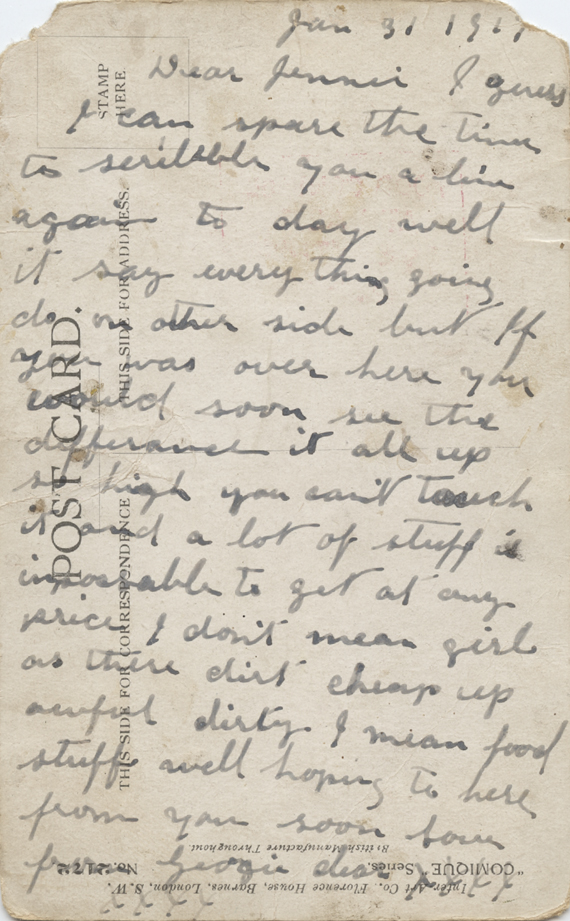 Jan 31 1917
Dear Jennie I guess
I can spare the time
to scribbble you a line
again to day well
it say every thing going
do on other side but If
you was over here you
would soon see the
differance it all up
so high you can't touch
it and a lot of stuff is
imposable to get at any
price I don't mean girl
as there dirt cheap up
awful dirty I mean food
stuff well hoping to here
from you soon
from Georgie dear x x x x
x x x x
STAMP
HERE
POST CARD.
THIS SIDE FOR ADDRESS.
THIS SIDE FOR CORRESPONDENCE
"COMIQUE" Series.
Inter-Art Co. Florence House, Barnes, London, S.W.
British Manufacture Throughout